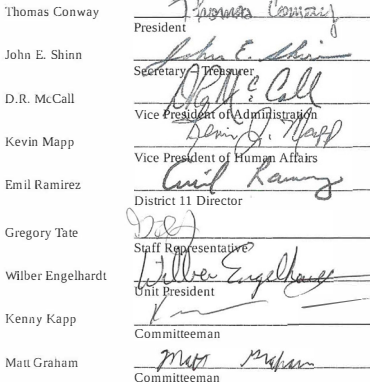 Thomas Conway Thomas Conway
President
John E. Shinn John E. Shinn
Secretary – Treasurer
D.R. McCall DR McCall
Vice President of Administration
Kevin Mapp Kevin J. Mapp
Vice President of Human Affairs
Emil Ramirez Emil Ramirez
District 11 Director
Gregory Tate
Staff Representative
Wilber Engelhardt Wilber Engelhardt
Unit President
Kenny Kapp
Committeeman
Matt Graham Matt Graham
Committeeman